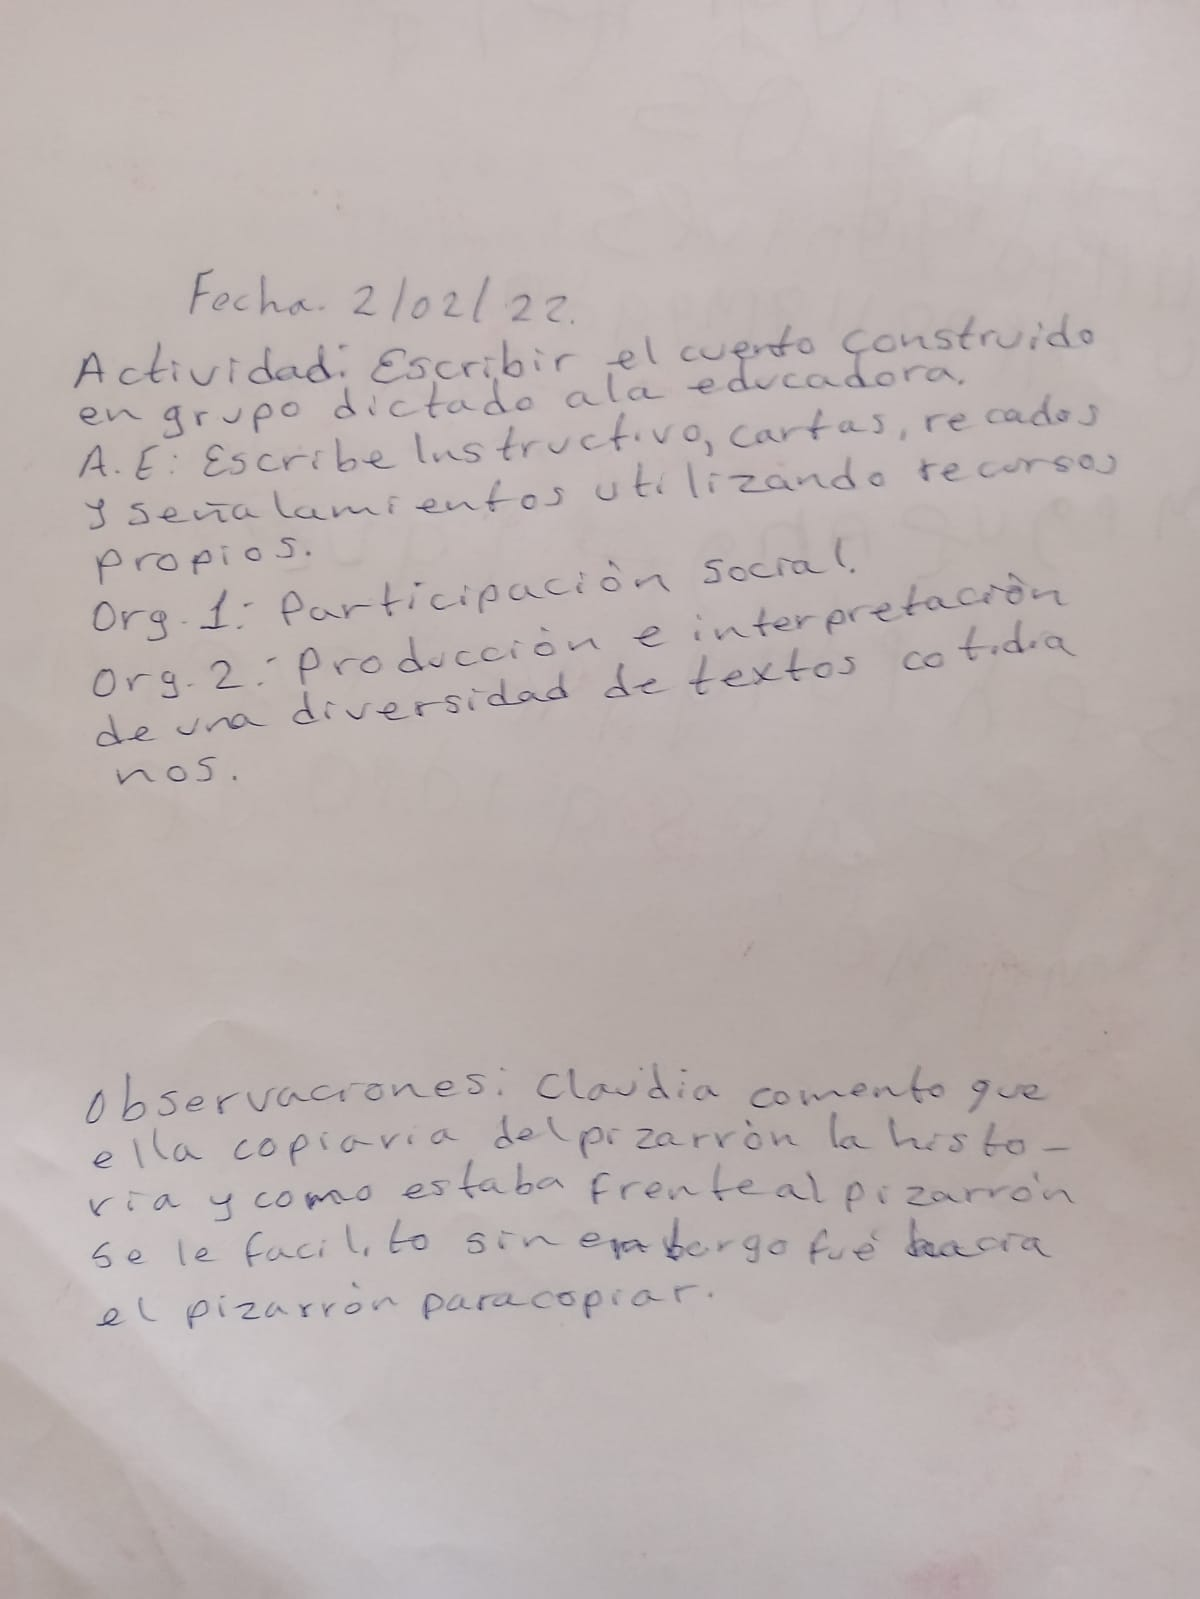 Fecha. 2/02/22.
Actividad: Escribir el cuento construido
en grupo dictado ala educadora.
A.E: Escribe Instructivo, cartas, recados
y señalamientos utilizando recursos
propios.
Org. 1: Participación social.
Org. 2: Producción e interpretación
de una diversidad de textos cotidia
nos.
Observaciones: Claudia comento que
ella copiaria del pizarrón la histo-
ria y como estaba frente al pizarrón
se le facilito sin embargo fué hacia
el pizarrón para copiar.